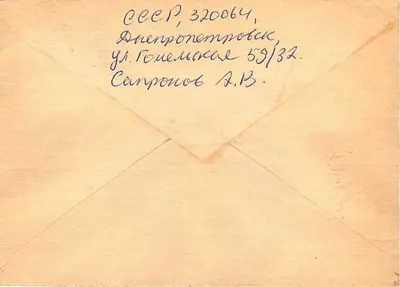 СССР, 320064,
Днепропетровск,
ул. Гомельская 59/32.
Сапронов А.В.